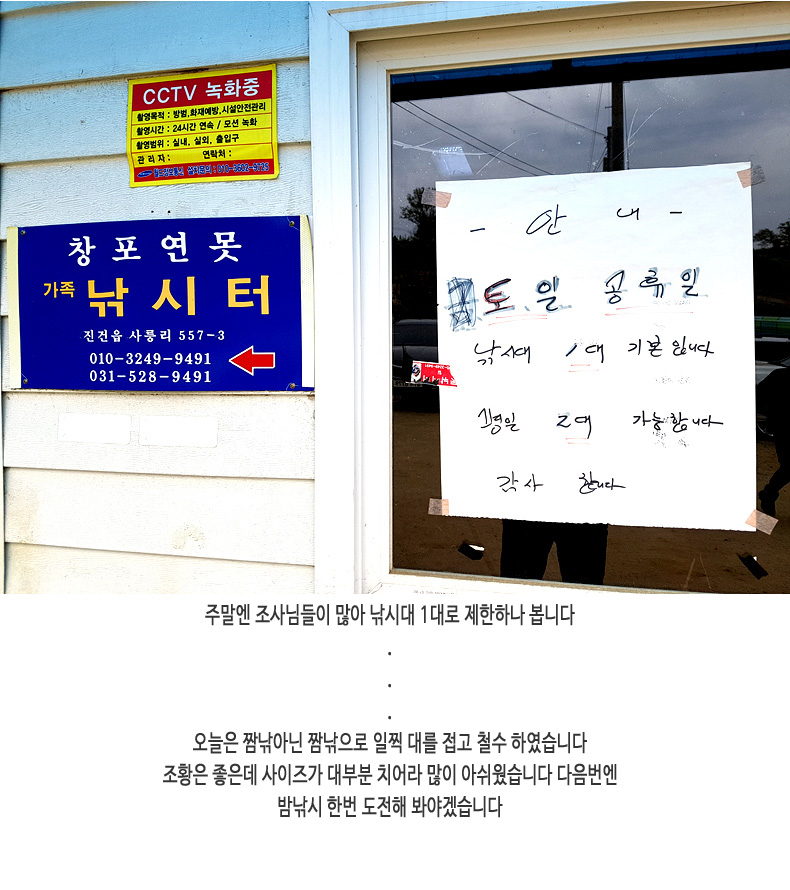 CCTV 녹화중
촬영목적 : 방범,화재예방,시설안전관리
촬영시간 : 24시간 연속 / 모션 녹화
촬영범위 : 실내, 실외, 출입구
관 리 자 : 연락처 :
설치문의 : 010-3682-5725
창포연못
가족 낚시터
진건읍 사릉리 557-3
010-3249-9491
031-528-9491
- 안 내 -
토 일 공휴일
낚시대 1대 기본 입니다
평일 2대 가능합니다
감사 합니다
주말엔 조사님들이 많아 낚시대 1대로 제한하나 봅니다
.
.
.
오늘은 짬낚아닌 짬낚으로 일찍 대를 접고 철수 하였습니다
조황은 좋은데 사이즈가 대부분 치어라 많이 아쉬웠습니다 다음번엔
밤낚시 한번 도전해 봐야겠습니다